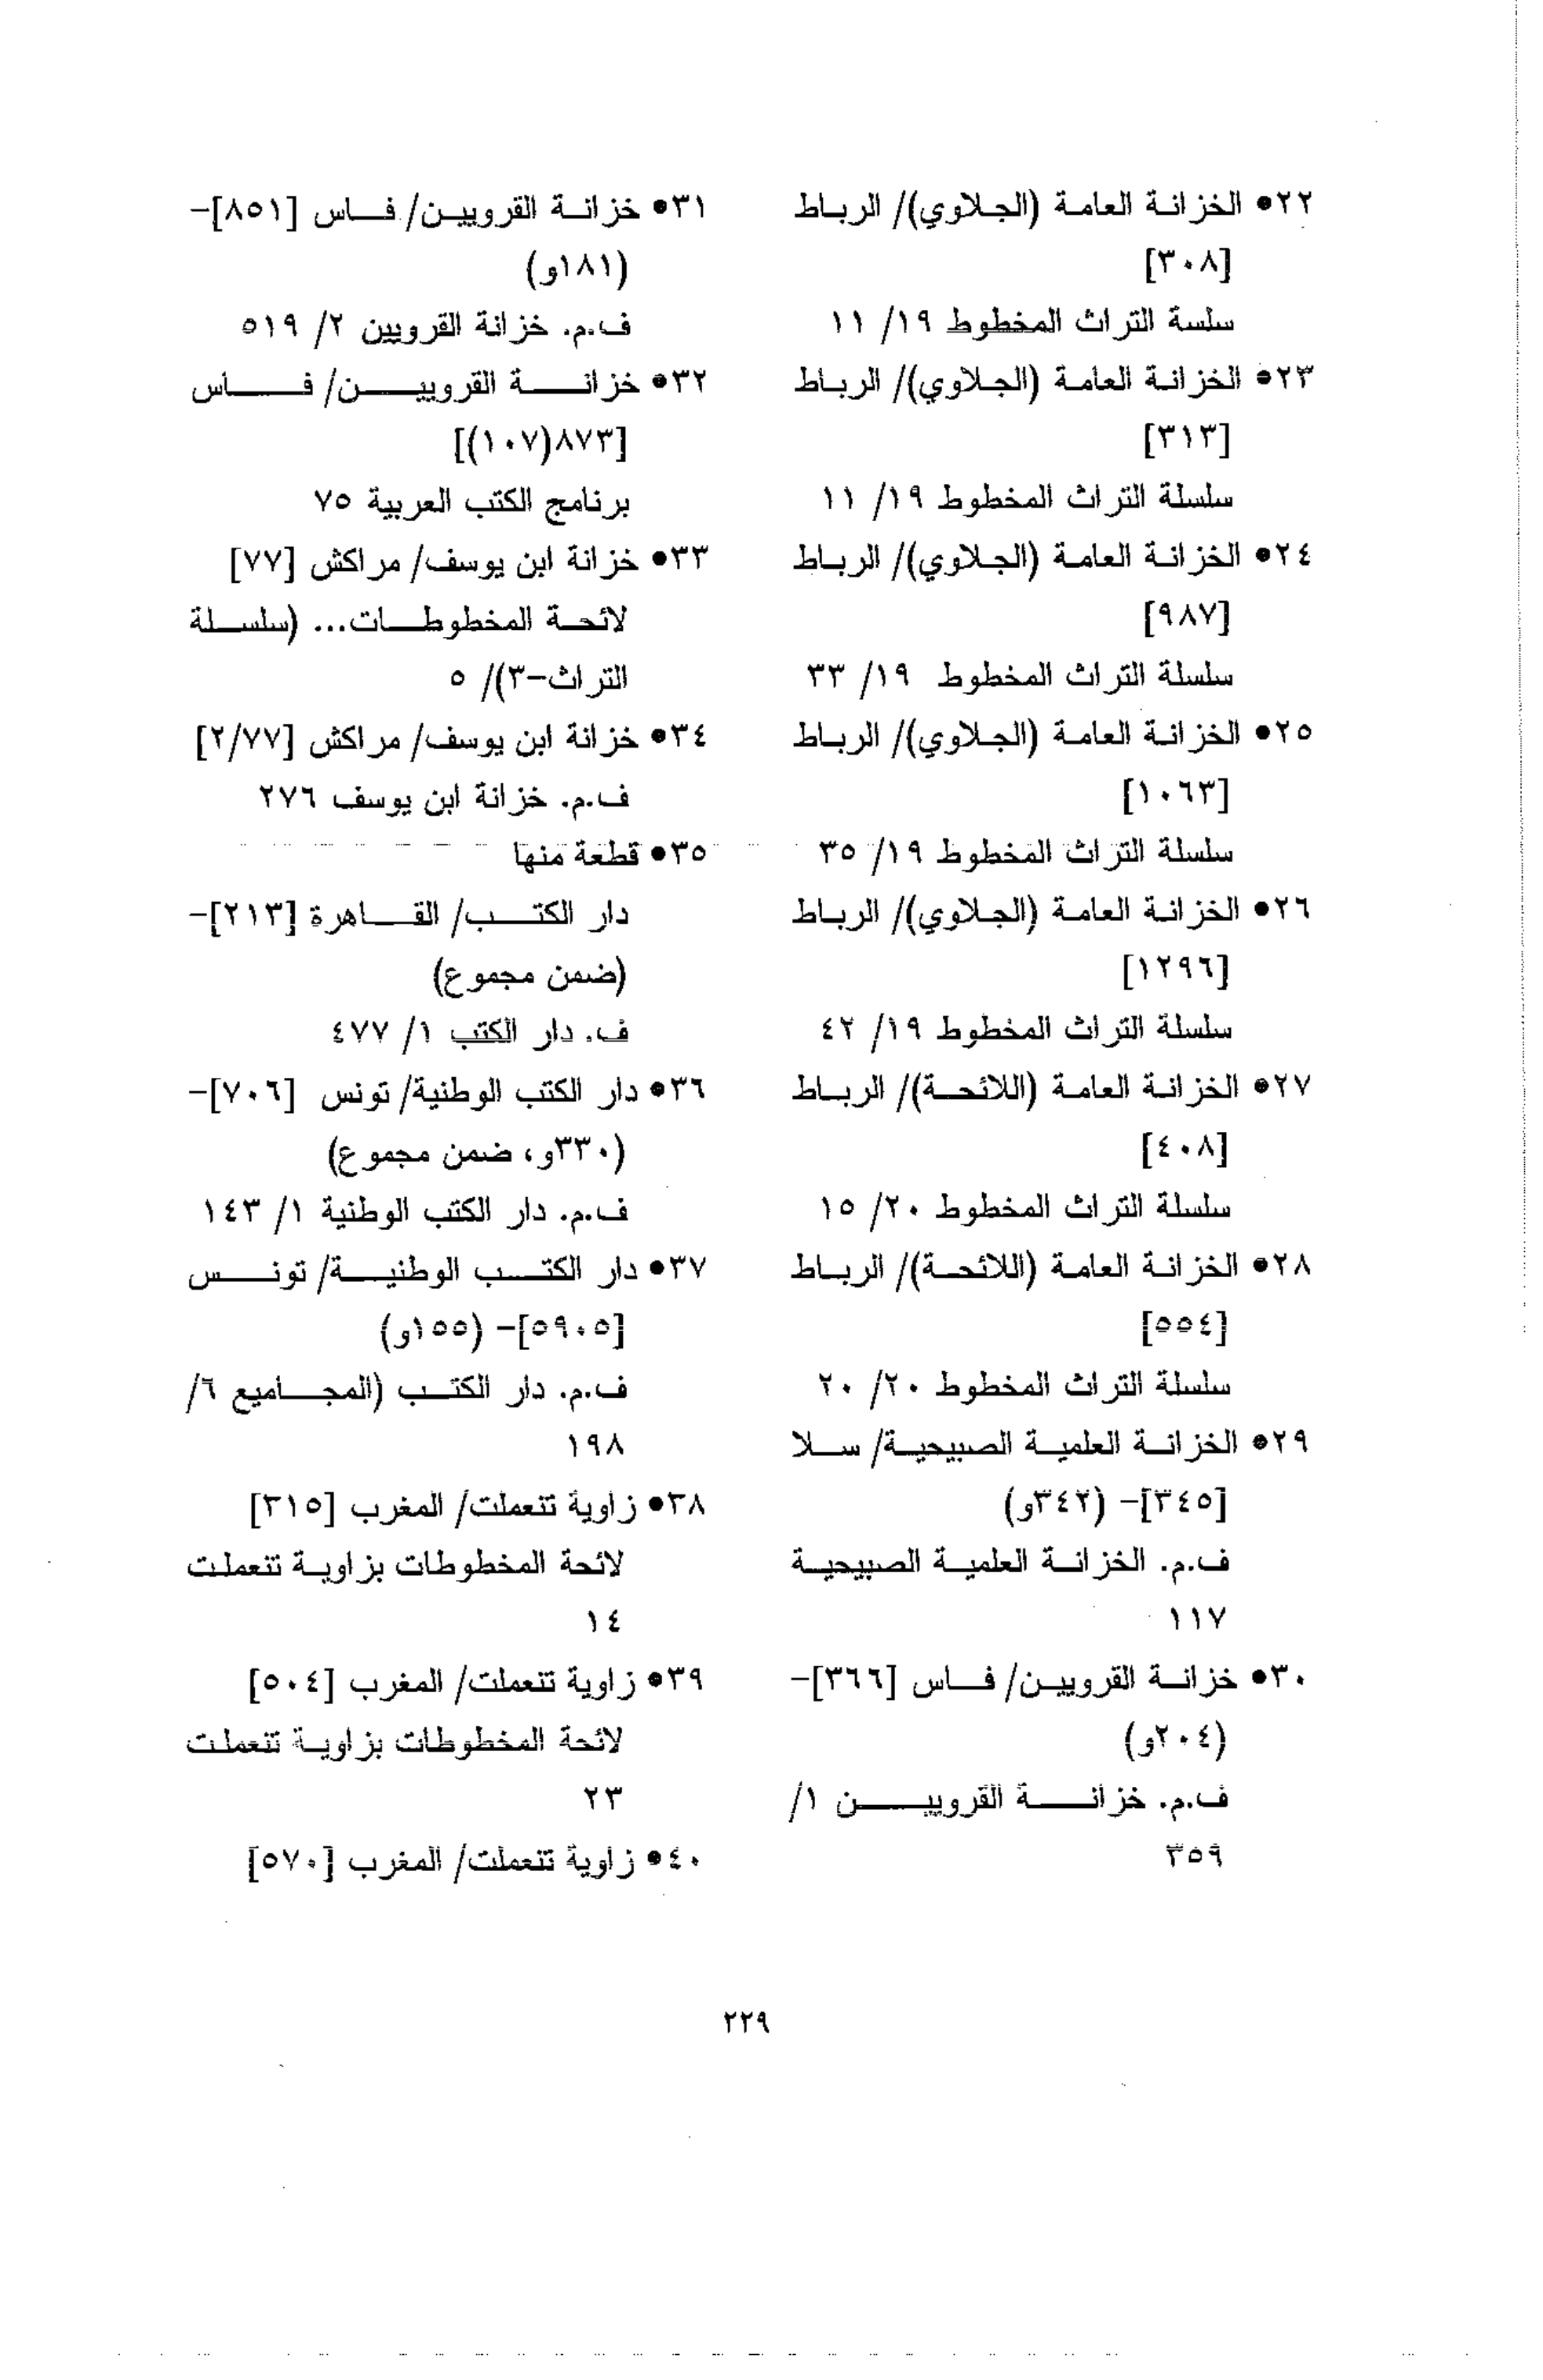 ٢٢• الخزانة العامة (الجلاوي)/ الرباط
[٣٠٨]
سلسة التراث المخطوط ١٩/ ١١
٢٣• الخزانة العامة (الجلاوي)/ الرباط
[٣١٣]
سلسلة التراث المخطوط ١٩/ ١١
٢٤• الخزانة العامة (الجلاوي)/ الرباط
[٩٨٧]
سلسلة التراث المخطوط ١٩/ ٣٣
٢٥• الخزانة العامة (الجلاوي)/ الرباط
[١٠٦٣]
سلسلة التراث المخطوط ١٩/ ٣٥
٢٦• الخزانة العامة (الجلاوي)/ الرباط
[١٢٩٦]
سلسلة التراث المخطوط ١٩/ ٤٢
٢٧• الخزانة العامة (اللائحة)/ الرباط
[٤٠٨]
سلسلة التراث المخطوط ٢٠/ ١٥
٢٨• الخزانة العامة (اللائحة)/ الرباط
[٥٥٤]
سلسلة التراث المخطوط ٢٠/ ٢٠
٢٩• الخزانة العلمية الصبيحية/ سلا
[٣٤٥]- (٣٤٢و)
ف.م. الخزانة العلمية الصبيحية
١١٧
٣٠• خزانة القرويين/ فاس [٣٦٦]-
(٢٠٤و)
ف.م. خزانة القرويين ١/
٣٥٩
٣١• خزانة القرويين/ فاس [٨٥١]-
(١٨١و)
ف.م. خزانة القرويين ٢/ ٥١٩
٣٢• خزانة القرويين/ فاس
[٨٧٣(١٠٧)]
برنامج الكتب العربية ٧٥
٣٣• خزانة ابن يوسف/ مراكش [٧٧]
لائحة المخطوطات... (سلسلة
التراث-٣)/ ٥
٣٤• خزانة ابن يوسف/ مراكش [٢/٧٧]
ف.م. خزانة ابن يوسف ٢٧٦
٣٥• قطعة منها
دار الكتب/ القاهرة [٢١٣]-
(ضمن مجموع)
ف. دار الكتب ١/ ٤٧٧
٣٦• دار الكتب الوطنية/ تونس [٧٠٦]-
(٣٣٠و، ضمن مجموع)
ف.م. دار الكتب الوطنية ١/ ١٤٣
٣٧• دار الكتب الوطنية/ تونس
[٥٩٠٥]- (١٥٥و)
ف.م. دار الكتب (المجاميع ٦/
١٩٨
٣٨• زاوية تنعملت/ المغرب [٣١٥]
لائحة المخطوطات بزاوية تنعملت
١٤
٣٩• زاوية تنعملت/ المغرب [٥٠٤]
لائحة المخطوطات بزاوية تنعملت
٢٣
٤٠• زاوية تنعملت/ المغرب [٥٧٠]
٢٢٩